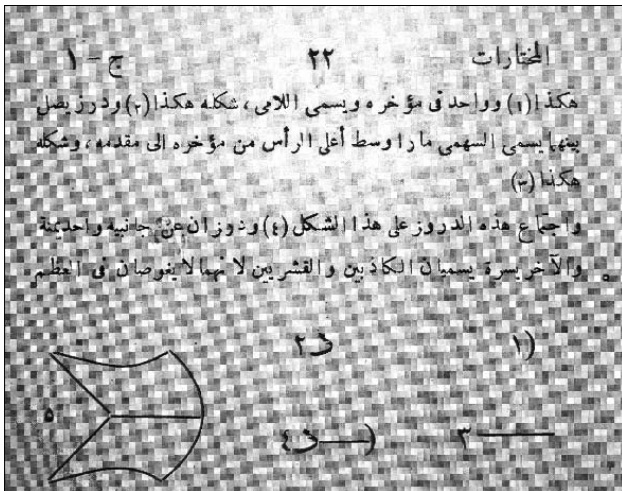 المختارات ٢٢ ج - ١
هكذا (١) وواحد فى مؤخره ويسمى اللامى ، شكله هكذا (٢) ودرز يصل
بينهما يسمى السهمى مارا وسط أعلى الرأس من مؤخره الى مقدمه ، وشكله
هكذا (٣)
واجتماع هذه الدروز على هذا الشكل (٤) ودروزان عن جانبيه واحد يمنة
والآخر يسرة يسميان الكاذبين والقشريين لا نهما لا يغوصان فى العظم
١
٢
٣
٤
٥